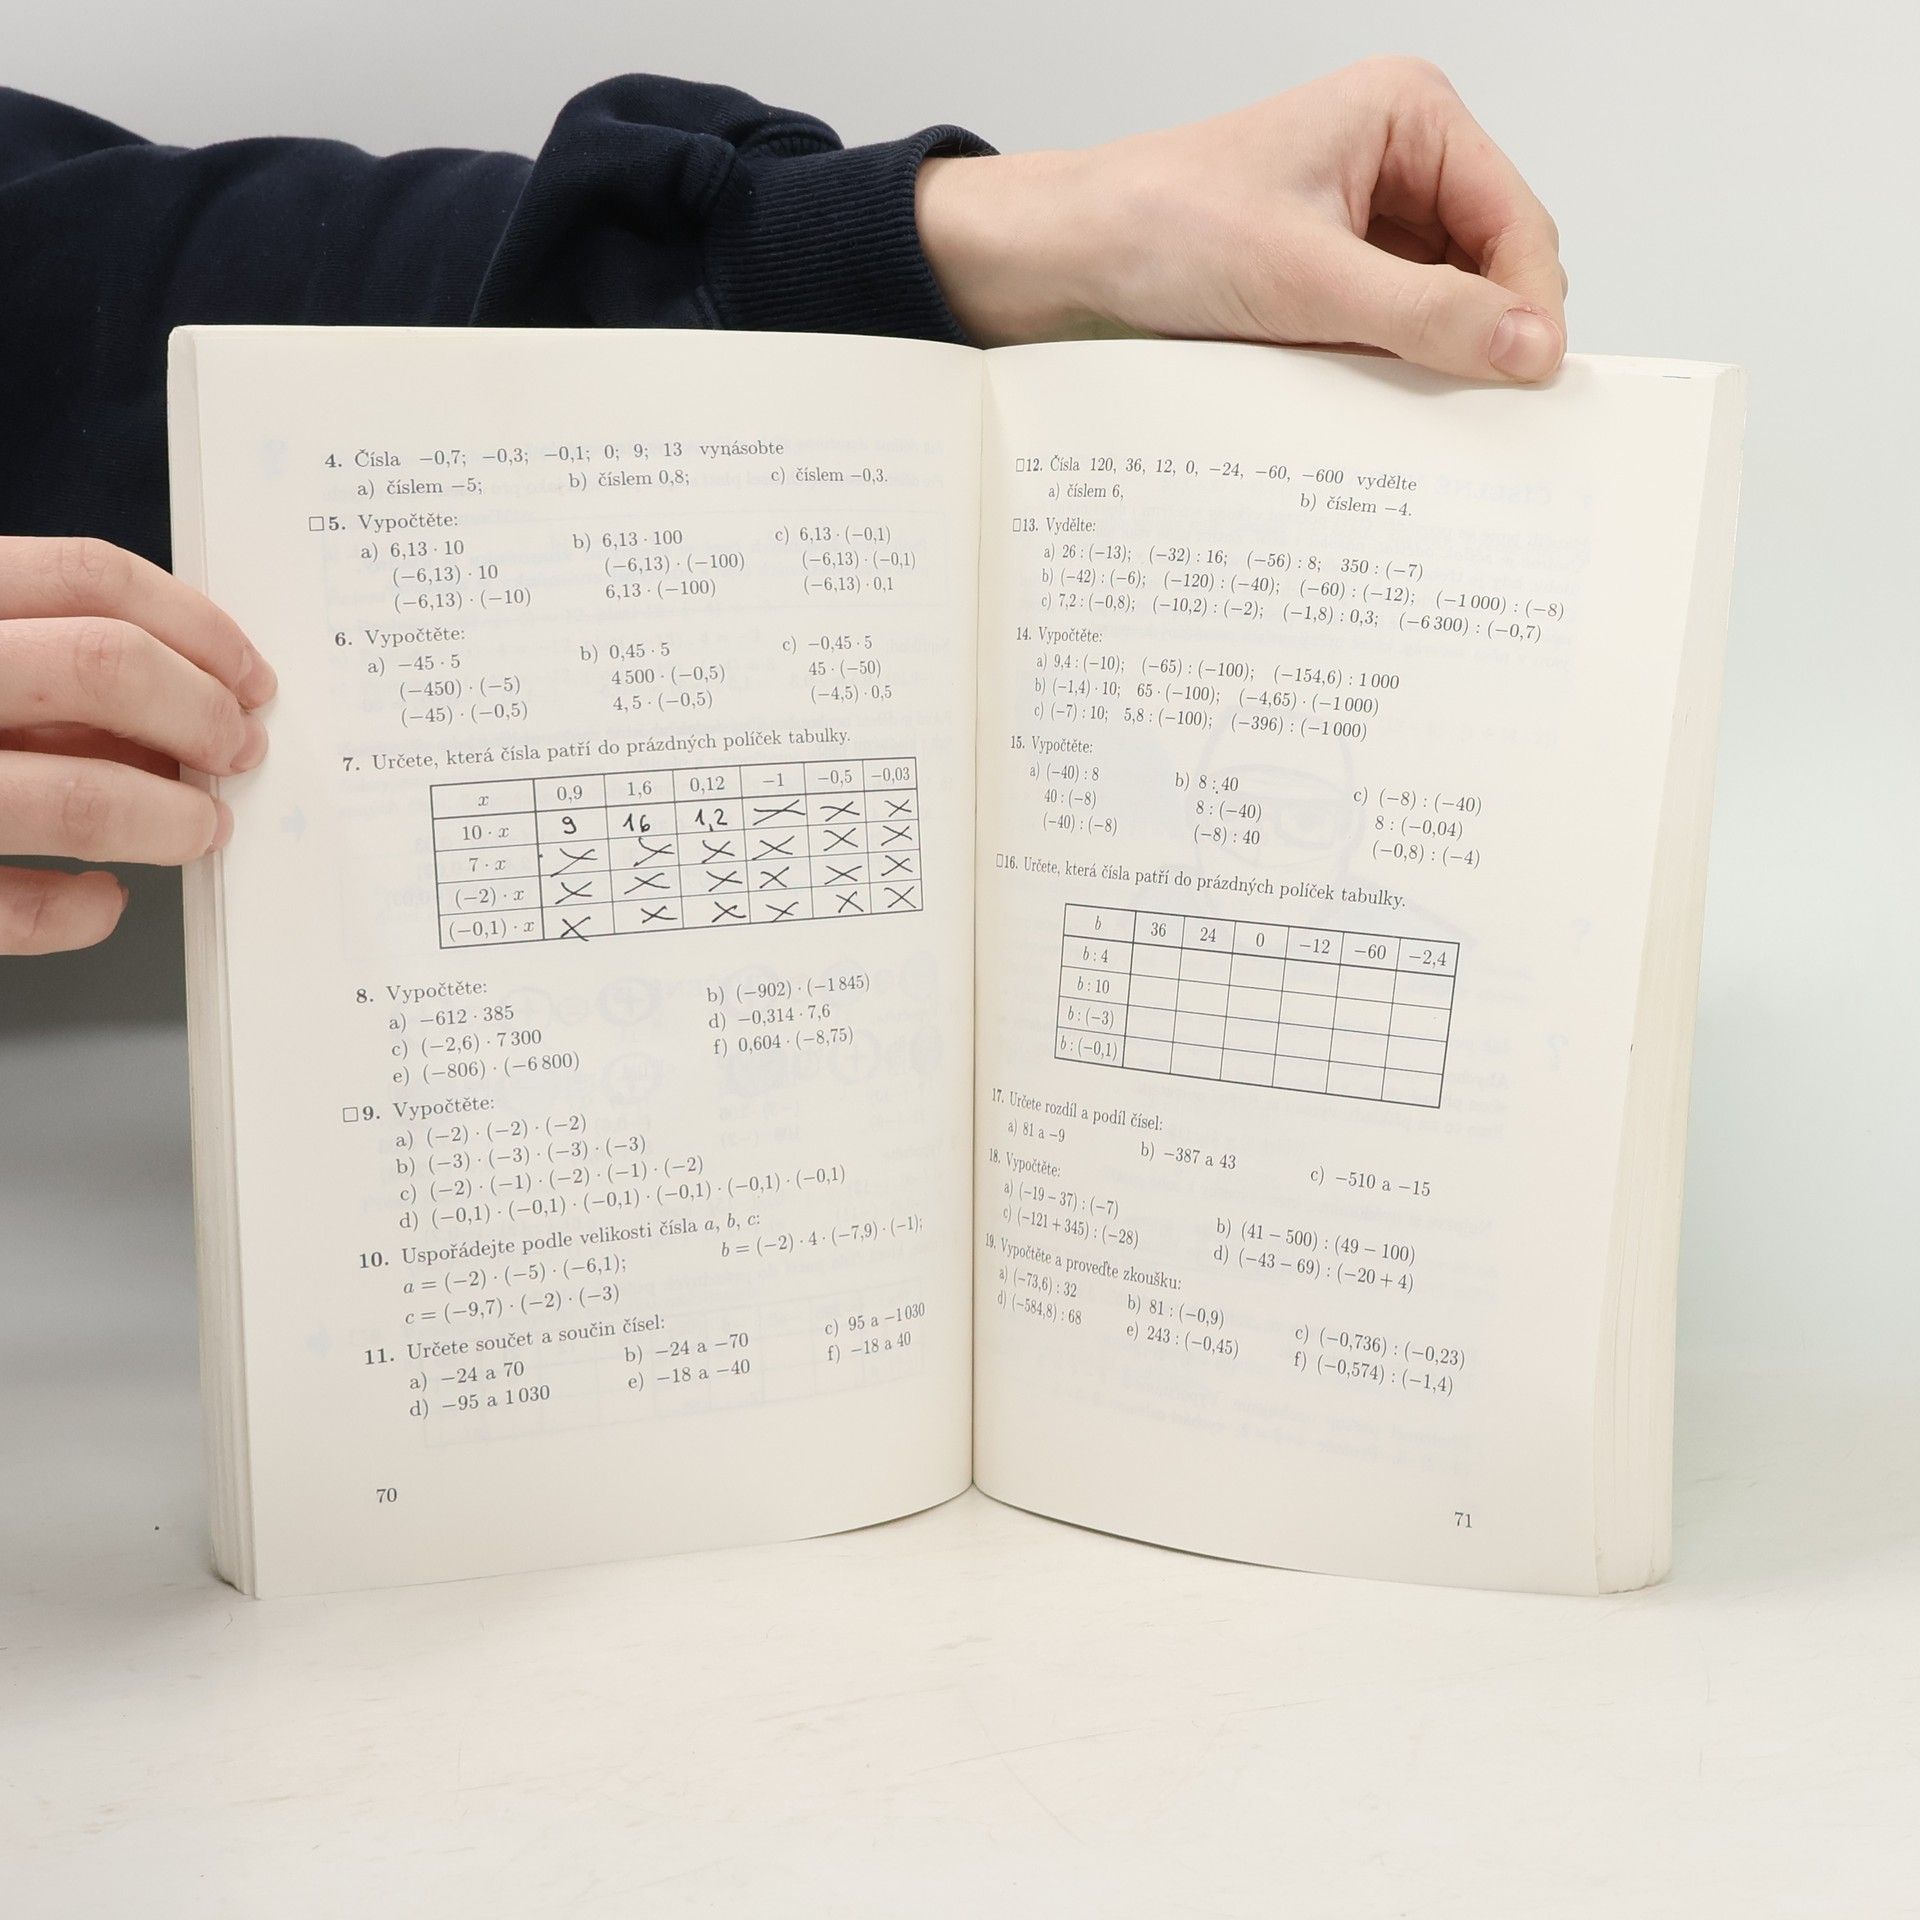 4. Čísla −0,7; −0,3; −0,1; 0; 9; 13 vynásobte
a) číslem −5; b) číslem 0,8; c) číslem −0,3.
□5. Vypočtěte:
a) 6,13 · 10 b) 6,13 · 100 c) 6,13 · (−0,1)
(−6,13) · 10 (−6,13) · (−100) (−6,13) · (−0,1)
(−6,13) · (−10) 6,13 · (−100) (−6,13) · 0,1
6. Vypočtěte:
a) −45 · 5 b) 0,45 · 5 c) −0,45 · 5
(−450) · (−5) 4 500 · (−0,5) 45 · (−50)
(−45) · (−0,5) 4, 5 · (−0,5) (−4,5) · 0,5
7. Určete, která čísla patří do prázdných políček tabulky.
x 0,9 1,6 0,12 −1 −0,5 −0,03
10 · x 9 16 1,2
7 · x
(−2) · x
(−0,1) · x
8. Vypočtěte:
a) −612 · 385 b) (−902) · (−1 845)
c) (−2,6) · 7 300 d) −0,314 · 7,6
e) (−806) · (−6 800) f) 0,604 · (−8,75)
□9. Vypočtěte:
a) (−2) · (−2) · (−2)
b) (−3) · (−3) · (−3) · (−3)
c) (−2) · (−1) · (−2) · (−1) · (−2)
d) (−0,1) · (−0,1) · (−0,1) · (−0,1) · (−0,1) · (−0,1)
10. Uspořádejte podle velikosti čísla a, b, c:
a = (−2) · (−5) · (−6,1); b = (−2) · 4 · (−7,9) · (−1);
c = (−9,7) · (−2) · (−3)
11. Určete součet a součin čísel:
a) −24 a 70 b) −24 a −70 c) 95 a −1 030
d) −95 a 1 030 e) −18 a −40 f) −18 a 40
70
□12. Čísla 120, 36, 12, 0, −24, −60, −600 vydělte
a) číslem 6, b) číslem −4.
□13. Vydělte:
a) 26 : (−13); (−32) : 16; (−56) : 8; 350 : (−7)
b) (−42) : (−6); (−120) : (−40); (−60) : (−12); (−1 000) : (−8)
c) 7,2 : (−0,8); (−10,2) : (−2); (−1,8) : 0,3; (−6 300) : (−0,7)
14. Vypočtěte:
a) 9,4 : (−10); (−65) : (−100); (−154,6) : 1 000
b) (−1,4) · 10; 65 · (−100); (−4,65) · (−1 000)
c) (−7) : 10; 5,8 : (−100); (−396) : (−1 000)
15. Vypočtěte:
a) (−40) : 8 b) 8 : 40 c) (−8) : (−40)
40 : (−8) 8 : (−40) 8 : (−0,04)
(−40) : (−8) (−8) : 40 (−0,8) : (−4)
□16. Určete, která čísla patří do prázdných políček tabulky.
b 36 24 0 −12 −60 −2,4
b : 4
b : 10
b : (−3)
b : (−0,1)
17. Určete rozdíl a podíl čísel:
a) 81 a −9 b) −387 a 43 c) −510 a −15
18. Vypočtěte:
a) (−19 − 37) : (−7) b) (41 − 500) : (49 − 100)
c) (−121 + 345) : (−28) d) (−43 − 69) : (−20 + 4)
19. Vypočtěte a proveďte zkoušku:
a) (−73,6) : 32 b) 81 : (−0,9) c) (−0,736) : (−0,23)
d) (−584,8) : 68 e) 243 : (−0,45) f) (−0,574) : (−1,4)
71